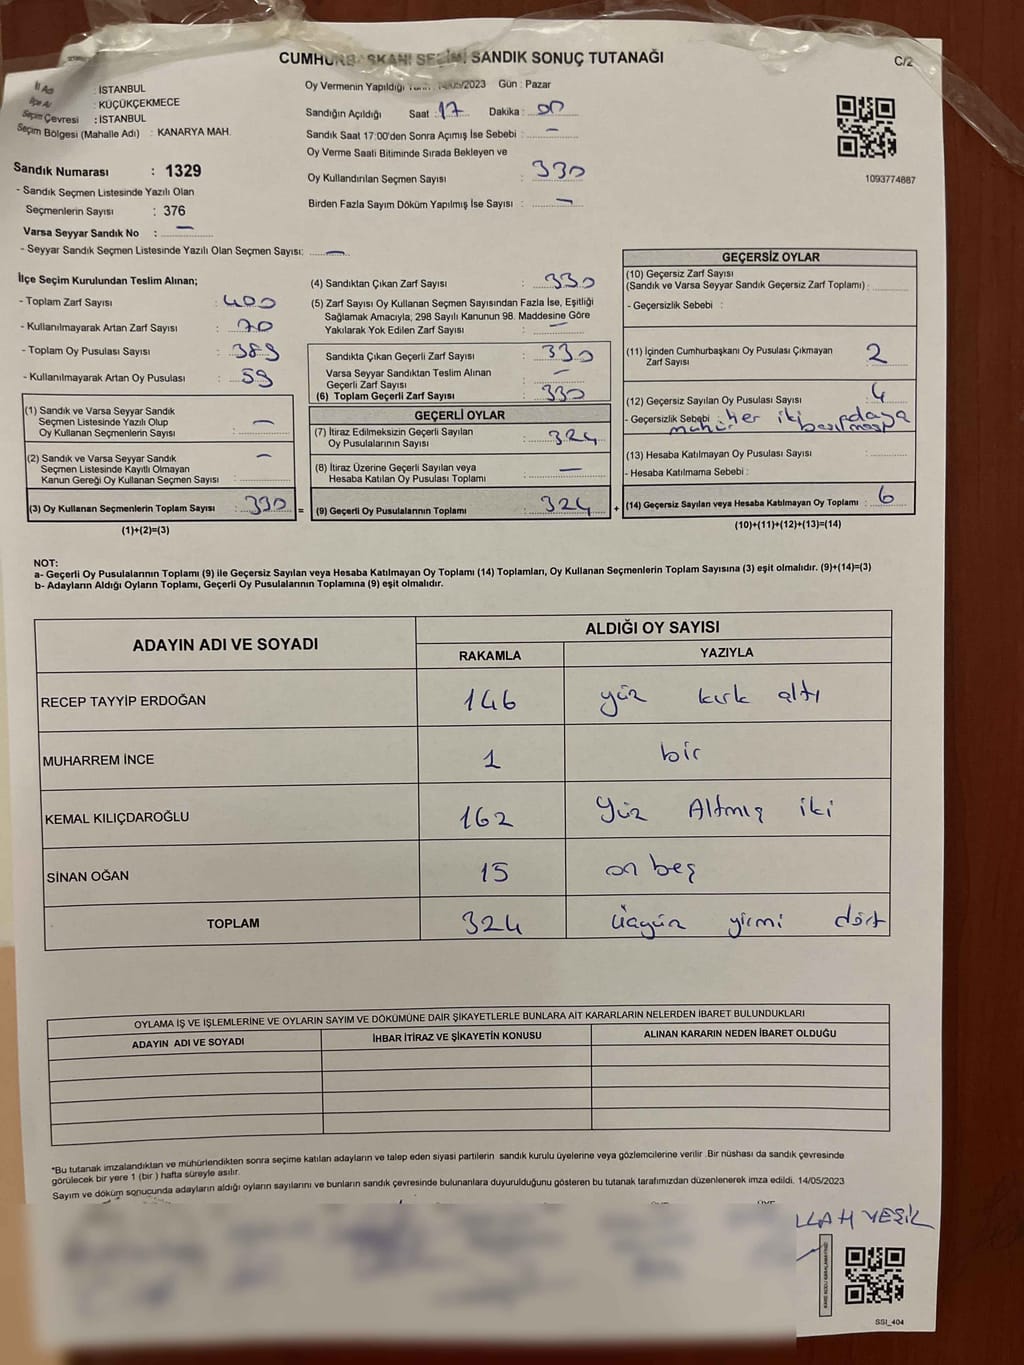 CUMHURBAŞKANI SEÇİMİ SANDIK SONUÇ TUTANAĞI
C/2
İl Adı : İSTANBUL
İlçe Adı : KÜÇÜKÇEKMECE
Seçim Çevresi : İSTANBUL
Seçim Bölgesi (Mahalle Adı) : KANARYA MAH.
Oy Vermenin Yapıldığı Tarih : 14/05/2023 Gün : Pazar
Sandığın Açıldığı Saat : 17 Dakika : 00
Sandık Saat 17:00'den Sonra Açımış İse Sebebi : —
Oy Verme Saati Bitiminde Sırada Bekleyen ve
Oy Kullandırılan Seçmen Sayısı : 330
Birden Fazla Sayım Döküm Yapılmış İse Sayısı : —
1093774887
Sandık Numarası : 1329
- Sandık Seçmen Listesinde Yazılı Olan
Seçmenlerin Sayısı : 376
Varsa Seyyar Sandık No : —
- Seyyar Sandık Seçmen Listesinde Yazılı Olan Seçmen Sayısı: —
İlçe Seçim Kurulundan Teslim Alınan;
- Toplam Zarf Sayısı : 400
- Kullanılmayarak Artan Zarf Sayısı : 70
- Toplam Oy Pusulası Sayısı : 389
- Kullanılmayarak Artan Oy Pusulası : 59
(1) Sandık ve Varsa Seyyar Sandık
Seçmen Listesinde Yazılı Olup
Oy Kullanan Seçmenlerin Sayısı : —
(2) Sandık ve Varsa Seyyar Sandık
Seçmen Listesinde Kayıtlı Olmayan
Kanun Gereği Oy Kullanan Seçmen Sayısı : —
(3) Oy Kullanan Seçmenlerin Toplam Sayısı : 330 =
(1)+(2)=(3)
(4) Sandıktan Çıkan Zarf Sayısı : 330
(5) Zarf Sayısı Oy Kullanan Seçmen Sayısından Fazla İse, Eşitliği
Sağlamak Amacıyla, 298 Sayılı Kanunun 98. Maddesine Göre
Yakılarak Yok Edilen Zarf Sayısı : —
Sandıkta Çıkan Geçerli Zarf Sayısı : 330
Varsa Seyyar Sandıktan Teslim Alınan
Geçerli Zarf Sayısı : —
(6) Toplam Geçerli Zarf Sayısı : 330
GEÇERLİ OYLAR
(7) İtiraz Edilmeksizin Geçerli Sayılan
Oy Pusulalarının Sayısı : 324
(8) İtiraz Üzerine Geçerli Sayılan veya
Hesaba Katılan Oy Pusulası Toplamı : —
(9) Geçerli Oy Pusulalarının Toplamı : 324 +
GEÇERSİZ OYLAR
(10) Geçersiz Zarf Sayısı
(Sandık ve Varsa Seyyar Sandık Geçersiz Zarf Toplamı) :
- Geçersizlik Sebebi :
(11) İçinden Cumhurbaşkanı Oy Pusulası Çıkmayan
Zarf Sayısı : 2
(12) Geçersiz Sayılan Oy Pusulası Sayısı : 4
- Geçersizlik Sebebi : Her iki adaya
mühür basılması
(13) Hesaba Katılmayan Oy Pusulası Sayısı :
- Hesaba Katılmama Sebebi :
(14) Geçersiz Sayılan veya Hesaba Katılmayan Oy Toplamı : 6
(10)+(11)+(12)+(13)=(14)
NOT:
a- Geçerli Oy Pusulalarının Toplamı (9) ile Geçersiz Sayılan veya Hesaba Katılmayan Oy Toplamı (14) Toplamları, Oy Kullanan Seçmenlerin Toplam Sayısına (3) eşit olmalıdır. (9)+(14)=(3)
b- Adayların Aldığı Oyların Toplamı, Geçerli Oy Pusulalarının Toplamına (9) eşit olmalıdır.
ADAYIN ADI VE SOYADI ALDIĞI OY SAYISI
RAKAMLA YAZIYLA
RECEP TAYYİP ERDOĞAN 146 yüz kırk altı
MUHARREM İNCE 1 bir
KEMAL KILIÇDAROĞLU 162 Yüz Altmış iki
SİNAN OĞAN 15 on beş
TOPLAM 324 üçyüz yirmi dört
OYLAMA İŞ VE İŞLEMLERİNE VE OYLARIN SAYIM VE DÖKÜMÜNE DAİR ŞİKAYETLERLE BUNLARA AİT KARARLARIN NELERDEN İBARET BULUNDUKLARI
ADAYIN ADI VE SOYADI İHBAR İTİRAZ VE ŞİKAYETİN KONUSU ALINAN KARARIN NEDEN İBARET OLDUĞU
*Bu tutanak imzalandıktan ve mühürlendikten sonra seçime katılan adayların ve talep eden siyasi partilerin sandık kurulu üyelerine veya gözlemcilerine verilir .Bir nüshası da sandık çevresinde
görülecek bir yere 1 (bir ) hafta süreyle asılır.
Sayım ve döküm sonucunda adayların aldığı oyların sayılarını ve bunların sandık çevresinde bulunanlara duyurulduğunu gösteren bu tutanak tarafımızdan düzenlenerek imza edildi. 14/05/2023
LLAH YEŞİL
SSI_404